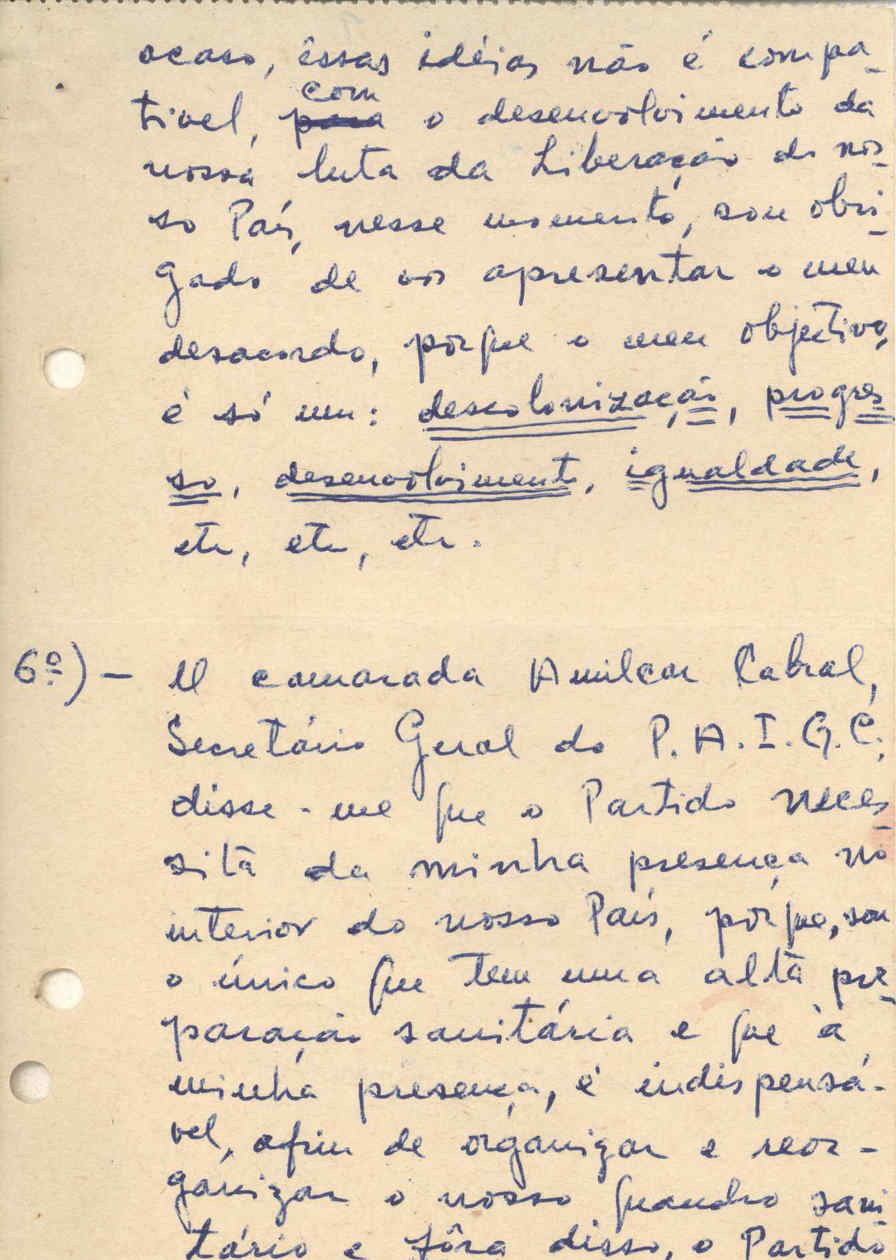 acaso, êssas idéias não é compa-
tivel, ~~para~~ com o desenvolvimento da
nossa luta da Liberação do nos-
so País, nesse momento, sou obri-
gado de vos apresentar o meu
desacordo, porque o meu objectivo,
é só um: descolonização, progres
so, desenvolvimento, igualdade,
etc, etc, etc.
6º) - O camarada Amilcar Cabral,
Secretário Geral do P.A.I.G.C.,
disse-me que o Partido neces-
sita da minha presença no
interior do nosso País, porque, sou
o único que tem uma alta pre-
paração sanitária e que à
minha presença, é indispensá-
vel, afim de organizar e reor-
ganizar o nosso quandro sani
tário e fôra disso, o Partido